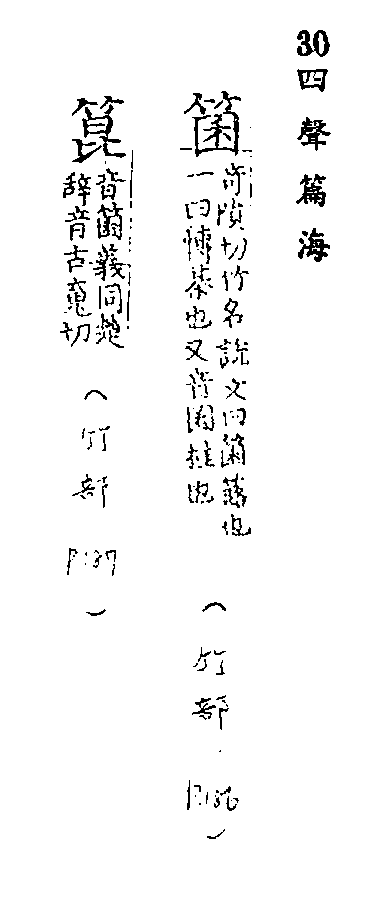 30四聲篇海
箘
奇隕切竹名說文曰箘簬也
一曰博棊也又音囷桂也
（竹部 P.186）
箟
音箘義同楚
辭音古魂切
（竹部 P.187）